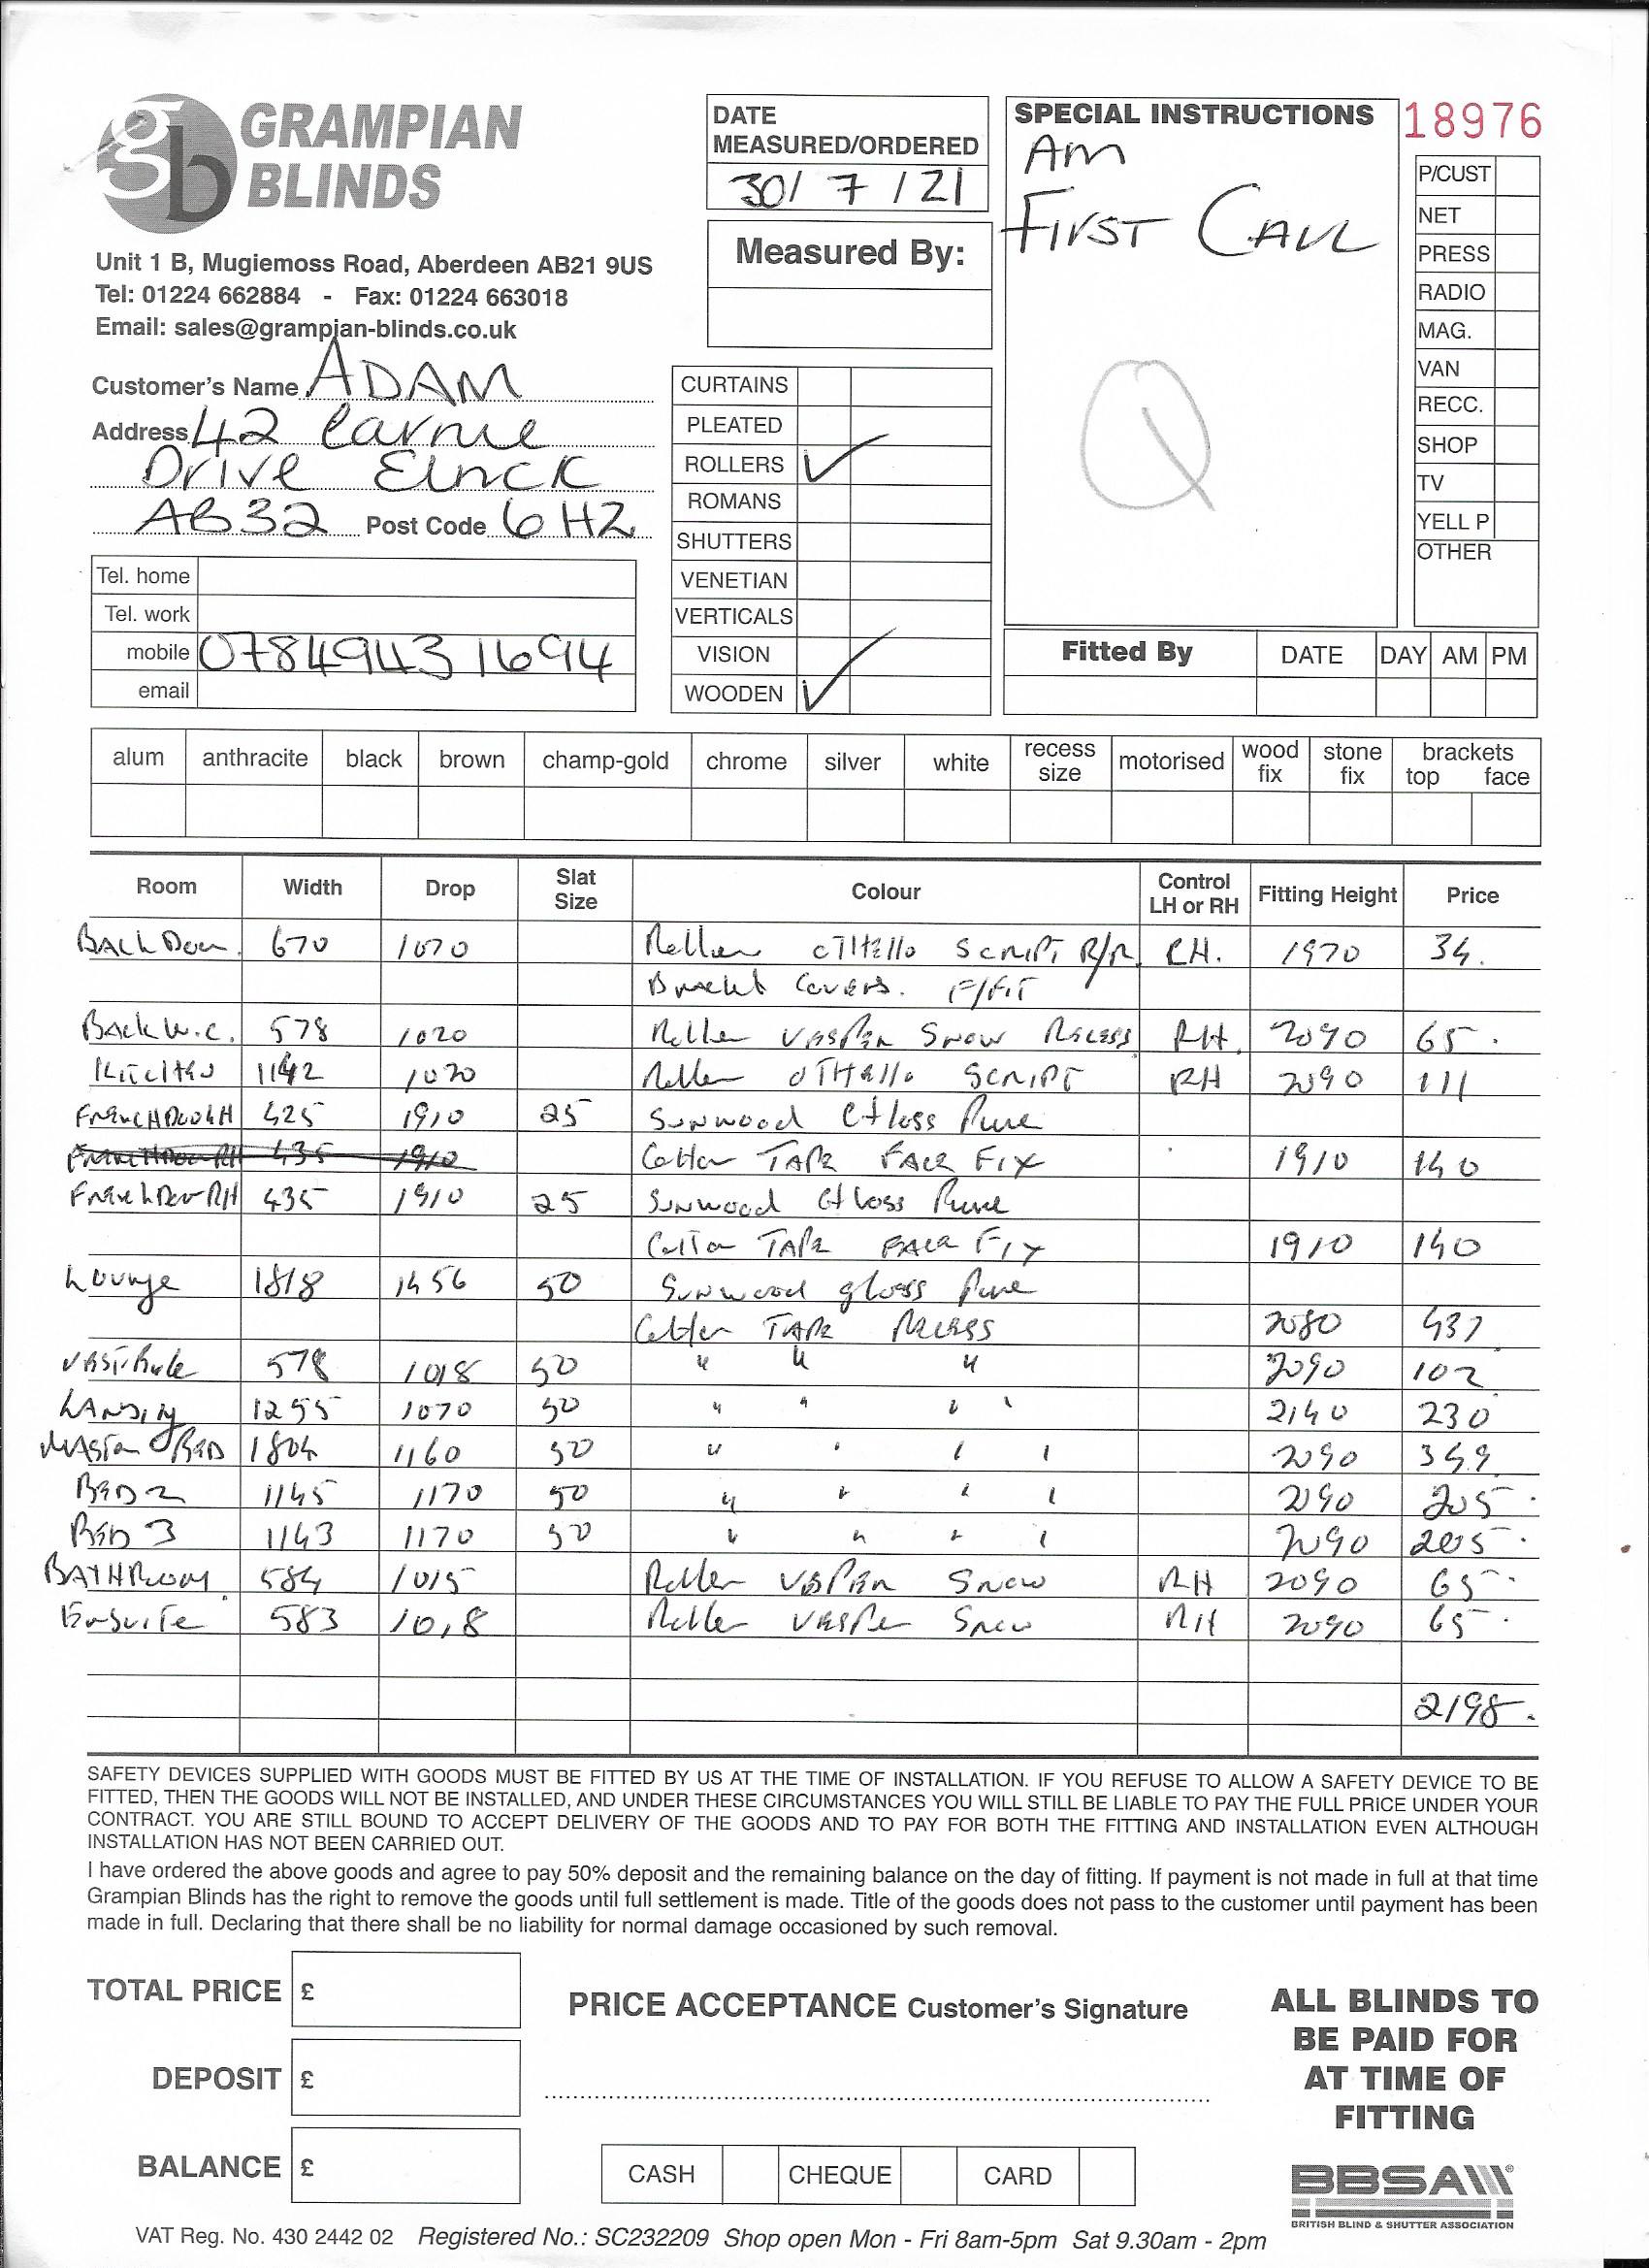 gb GRAMPIAN BLINDS
Unit 1 B, Mugiemoss Road, Aberdeen AB21 9US
Tel: 01224 662884 - Fax: 01224 663018
Email: sales@grampian-blinds.co.uk
Customer's Name ADAM
Address 42 Carnie
Drive Elrick
AB32 Post Code 6HZ
Tel. home
Tel. work
mobile 07849431694
email
DATE
MEASURED/ORDERED
30/7/21
Measured By:
CURTAINS
PLEATED
ROLLERS ✓
ROMANS
SHUTTERS
VENETIAN
VERTICALS
VISION
WOODEN ✓
SPECIAL INSTRUCTIONS
AM
FIRST CALL
Q
18976
P/CUST
NET
PRESS
RADIO
MAG.
VAN
RECC.
SHOP
TV
YELL P
OTHER
Fitted By DATE DAY AM PM
alum anthracite black brown champ-gold chrome silver white recess size motorised wood fix stone fix brackets top face
Room Width Drop Slat Size Colour Control LH or RH Fitting Height Price
Back Door 670 1070 Roller OTHello Script R/R RH. 1970 34.
Bracket Covers. F/FIT
Back W.C. 578 1020 Roller Vesper Snow Recess RH. 2090 65.
Kitchen 1142 1020 Roller OTHello SCRIPT RH 2090 111
French Door LH 425 1910 25 Sunwood Gloss Pure
French Door RH 435 1910 Cotton TAPe FAce FIX 1910 140
French Door RH 435 1910 25 Sunwood Gloss Pure
Cotton TAPe FAce FIX 1910 140
Lounge 1818 1456 50 Sunwood gloss Pure
Cotton TAPe Recess 2080 437
Vestibule 578 1018 50 " " " 2090 102
LANDING 1295 1070 50 " " " " 2140 230
Master Bed 1804 1160 50 " " " " 2090 349
Bed 2 1145 1170 50 " " " " 2090 205.
Bed 3 1143 1170 50 " " " " 2090 205.
BATHRoom 584 1015 Roller Vesper Snow RH 2090 65.
Ensuite 583 1018 Roller Vesper Snow RH 2090 65.
2198.
SAFETY DEVICES SUPPLIED WITH GOODS MUST BE FITTED BY US AT THE TIME OF INSTALLATION. IF YOU REFUSE TO ALLOW A SAFETY DEVICE TO BE
FITTED, THEN THE GOODS WILL NOT BE INSTALLED, AND UNDER THESE CIRCUMSTANCES YOU WILL STILL BE LIABLE TO PAY THE FULL PRICE UNDER YOUR
CONTRACT. YOU ARE STILL BOUND TO ACCEPT DELIVERY OF THE GOODS AND TO PAY FOR BOTH THE FITTING AND INSTALLATION EVEN ALTHOUGH
INSTALLATION HAS NOT BEEN CARRIED OUT.
I have ordered the above goods and agree to pay 50% deposit and the remaining balance on the day of fitting. If payment is not made in full at that time
Grampian Blinds has the right to remove the goods until full settlement is made. Title of the goods does not pass to the customer until payment has been
made in full. Declaring that there shall be no liability for normal damage occasioned by such removal.
TOTAL PRICE £
DEPOSIT £
BALANCE £
PRICE ACCEPTANCE Customer's Signature
CASH CHEQUE CARD
ALL BLINDS TO
BE PAID FOR
AT TIME OF
FITTING
BBSA
BRITISH BLIND & SHUTTER ASSOCIATION
VAT Reg. No. 430 2442 02 Registered No.: SC232209 Shop open Mon - Fri 8am-5pm Sat 9.30am - 2pm